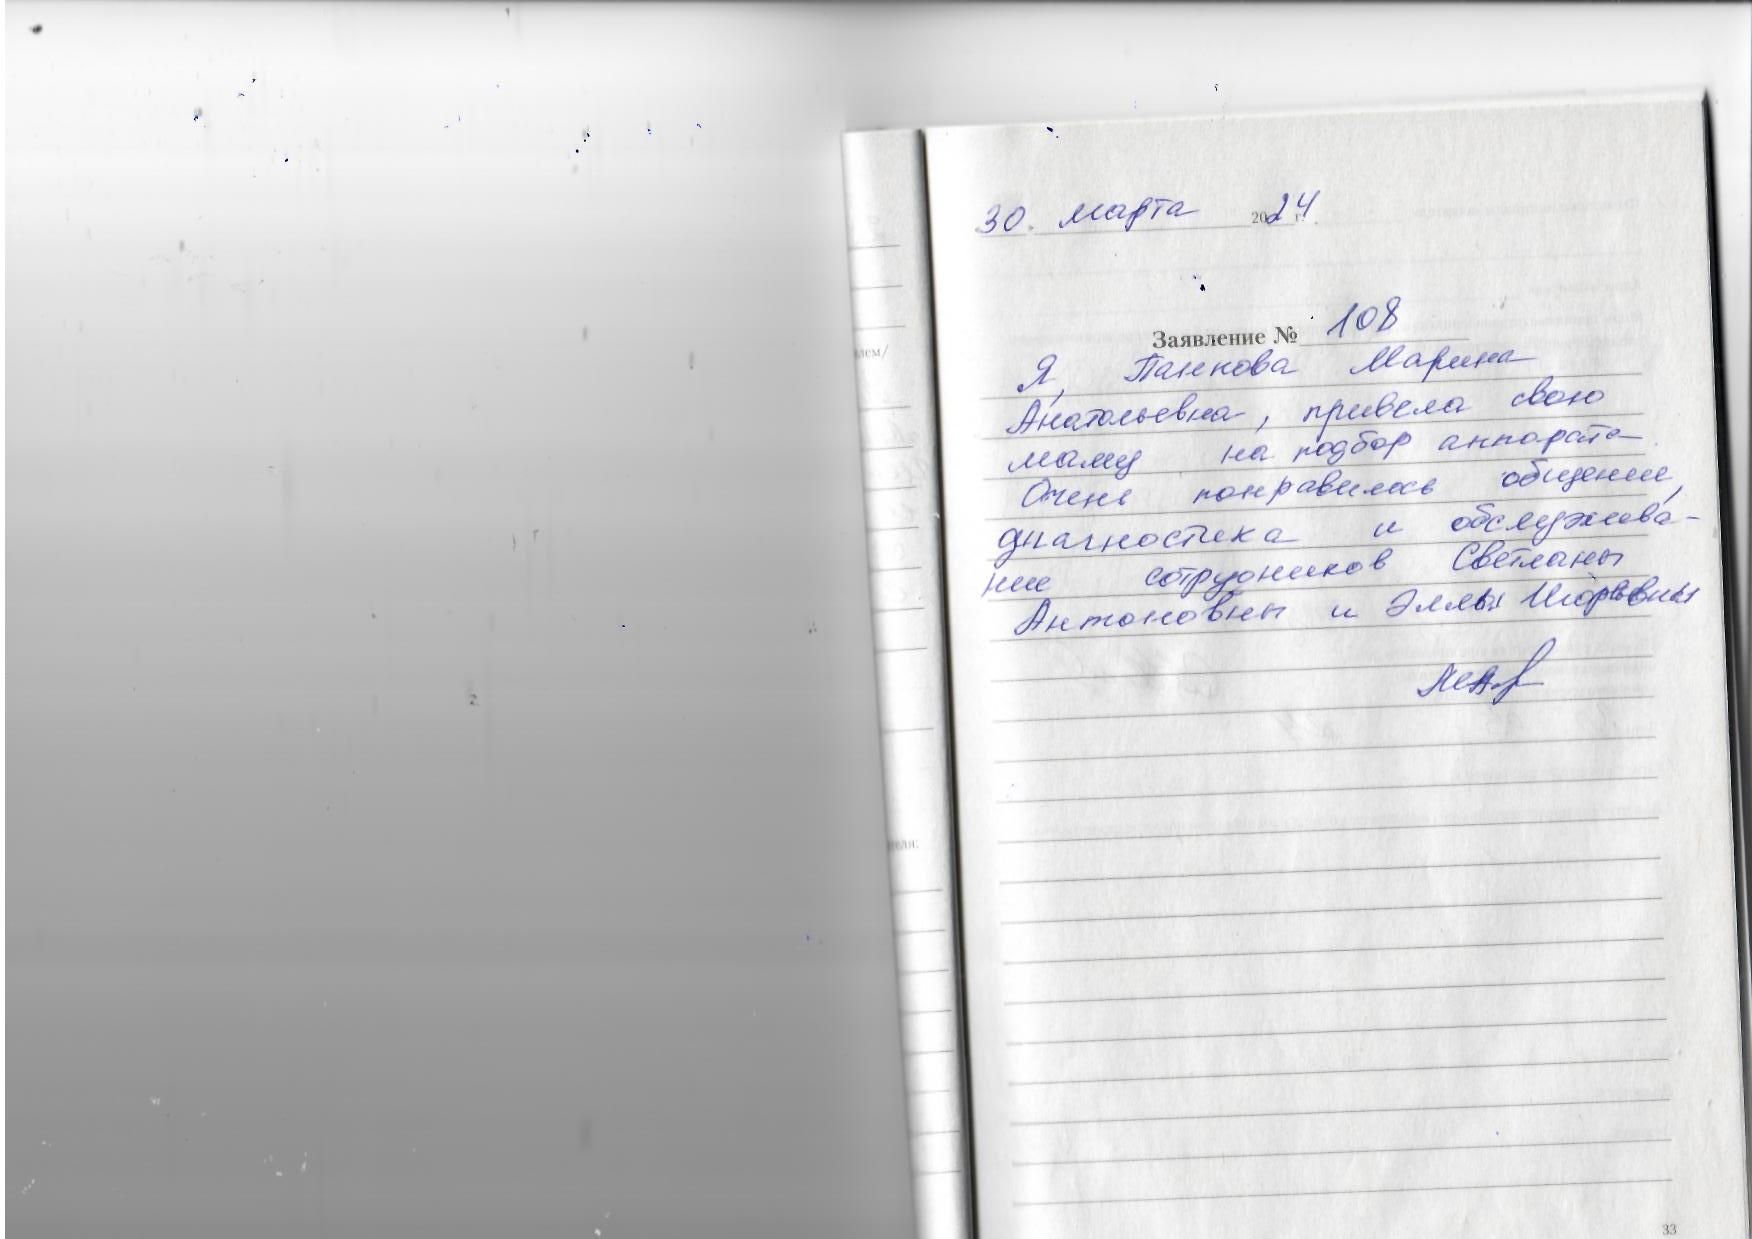 30. марта 2024 г.
Заявление № 108
Я, Панкова Марина
Анатольевна, привела свою
маму на подбор аппарата.
Очень понравилось общение,
диагностика и обслужива-
ние сотрудников Светланы
Антоновны и Эллы Игоревны
лем/
теля:
33